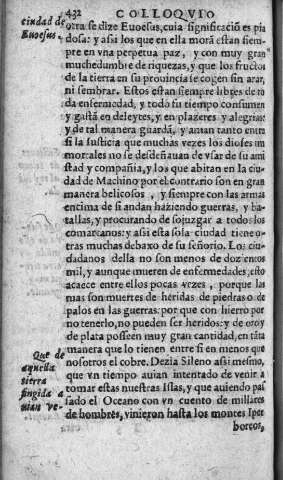 432 COLLOQVIO
ciudad de
Euoesus.
otra se dize Euoesus, cuia significació es pia
dosa: y assi los que en ella morã estan siem-
pre en vna perpetua paz, y con muy gran
muchedumbre de riquezas, y que los fructos
de la tierra en su prouincia se cogen sin arar,
ni sembrar. Estos estan siempre libres de to
da enfermedad, y todo su tiempo consumen
y gastã en deleytes, y en plazeres y alegrias:
y de tal manera guardã, y aman tanto entre
si la Iusticia que muchas vezes los dioses im
mortales no se desdeñauan de vsar de su ami
stad y compañia, y los que abitan en la ciu
dad de Machino por el contrario son en gran
manera belicosos, y siempre con las armas
encima de si andan haziendo guerras, y ba-
tallas, y procurando de sojuzgar a todos los
comarcanos: y assi esta sola ciudad tiene o-
tras muchas debaxo de su señorio. Los ciu-
dadanos della no son menos de doz entos
mil, y aunque mueren de enfermedades, esto
acaece entre ellos pocas vezes, porque las
mas son muertes de heridas de piedras o de
palos en las guerras: por que con hierro por
no tenerlo, no pueden ser heridos: y de oro y
de plata posseen muy gran cantidad, en tãta
manera que lo tienen entre si en menos que
nosotros el cobre. Dezia Sileno assi mesmo,
que vn tiempo auian intentado de venir a
tomar estas nuestras Islas, y que auiendo pas
sado el Oceano con vn cuento de millares
de hombres, vinieron hasta los montes Iper
Que de
aquella
tierra
fingida a
uian ve-
boreos,